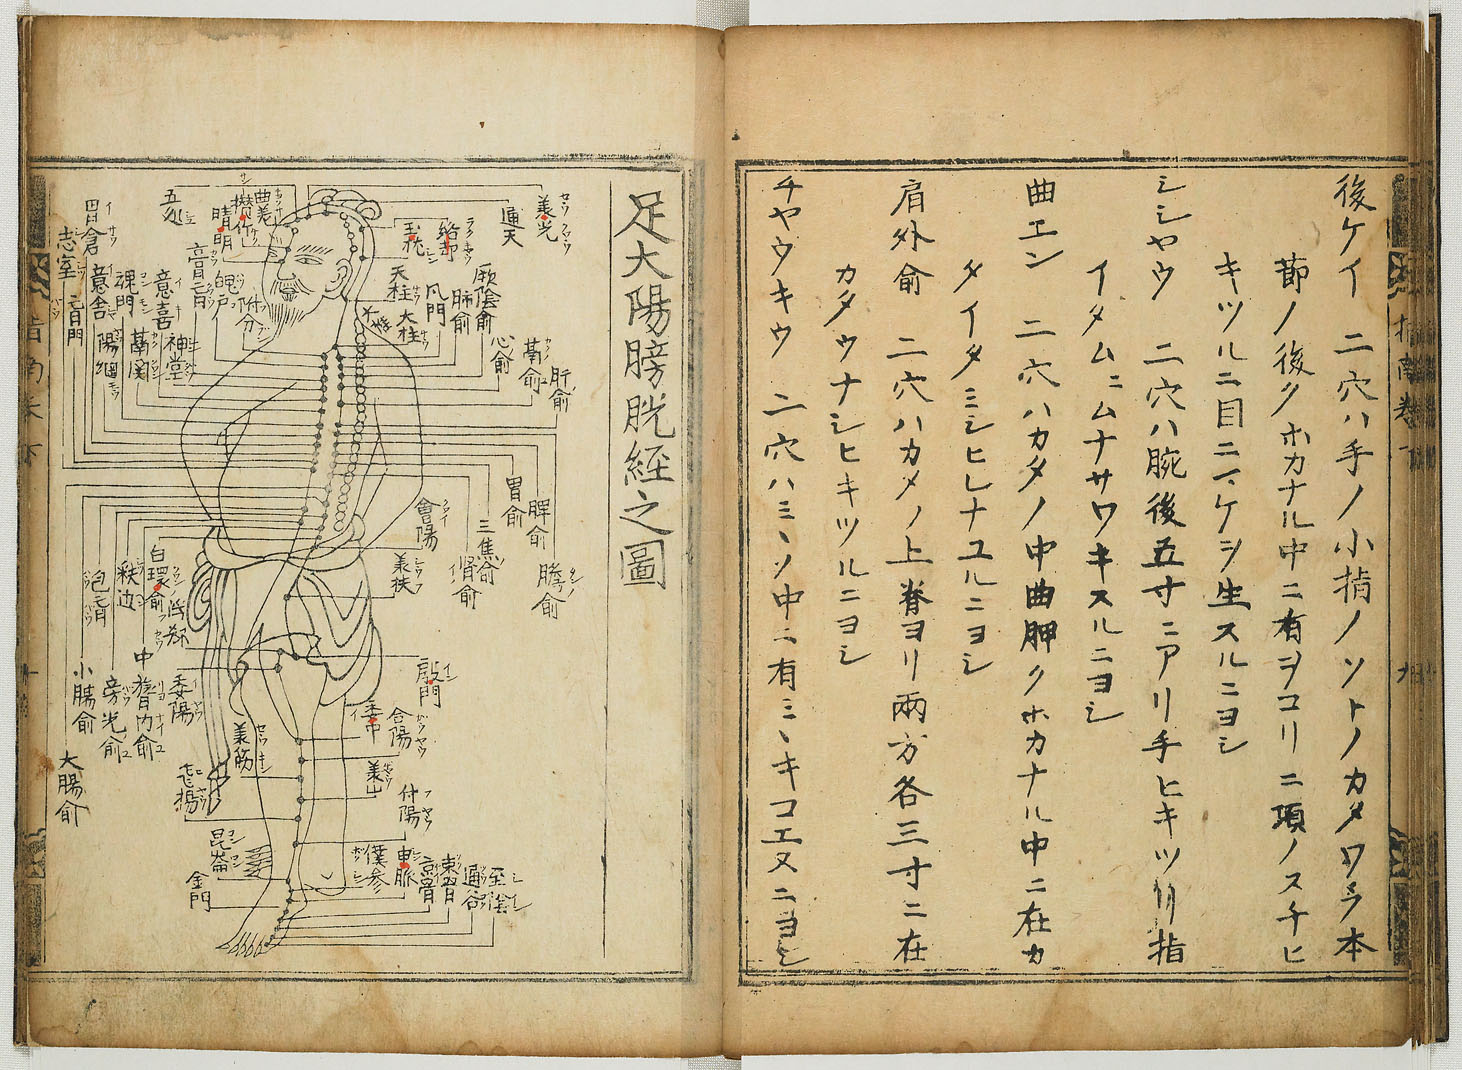 後ケイ 二穴ハ手ノ小指ノソトノカタワラ本
節ノ後クホカナル中ニ有ヲコリニ項ノスチヒ
キツルニ目ニヽケヲ生スルニヨシ
シシヤウ 二穴ハ腕後五寸ニアリ手ヒキツリ指
イタムニムナサワキスルニヨシ
曲エン 二穴ハカタノ中曲胛クホカナル中ニ在カ
タイタミシヒレナユルニヨシ
肩外俞 二穴ハカタノ上脊ヨリ兩方各三寸ニ在
カタウナシヒキツルニヨシ
チヤウキウ 二穴ハミヽノ中ニ有ミヽキコエヌニヨシ
足大陽膀胱経之圖
通天
玉枕
絡却
天柱
大柱
風門
厥陰俞
肺俞
心俞
膈俞
肝俞
五処
曲差
攅竹
晴明
膏肓
魄戸
附分
意喜
神堂
魂門
膈関
意舎
陽綱
胃倉
志室
肓門
胃俞
脾俞
三焦俞
腎俞
膽俞
會陽
白環俞
秩边
胞肓
中膂内俞
旁光俞
小腸俞
大腸俞
委陽
殷門
委中
合陽
飛揚
付陽
昆崙
金門
僕参
申脈
京骨
束骨
通谷
至陰